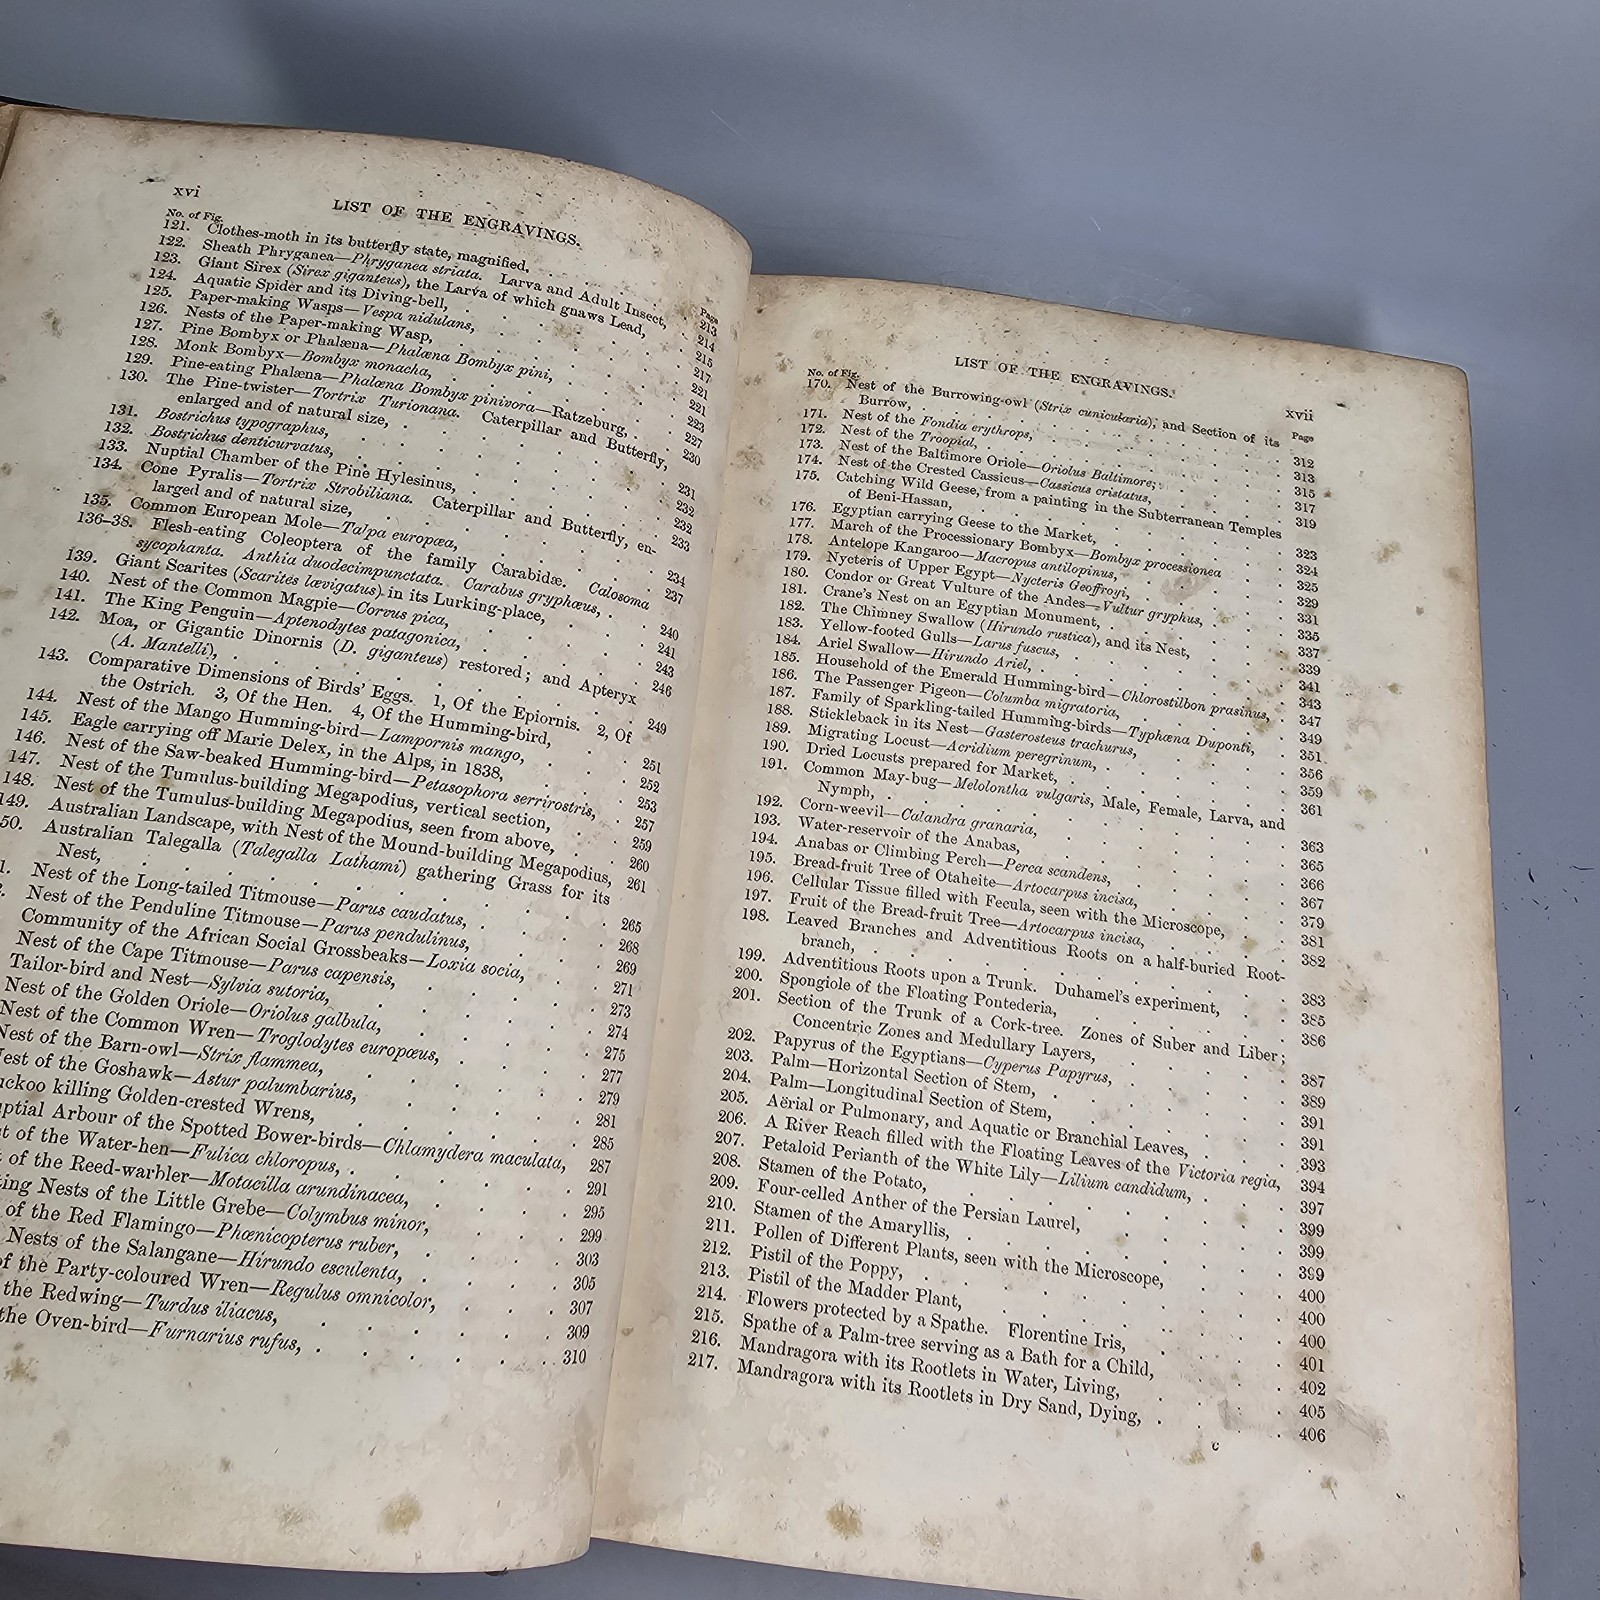 xvi
LIST OF THE ENGRAVINGS.
No. of Fig.
Page
121. Clothes-moth in its butterfly state, magnified, 213
122. Sheath Phryganea—Phryganea striata. Larva and Adult Insect, 214
123. Giant Sirex (Sirex giganteus), the Larva of which gnaws Lead, 215
124. Aquatic Spider and its Diving-bell, 217
125. Paper-making Wasps—Vespa nidulans, 221
126. Nests of the Paper-making Wasp, 221
127. Pine Bombyx or Phalæna—Phalæna Bombyx pini, 223
128. Monk Bombyx—Bombyx monacha, 227
129. Pine-eating Phalæna—Phalæna Bombyx pinivora—Ratzeburg, 230
130. The Pine-twister—Tortrix Turionana. Caterpillar and Butterfly,
enlarged and of natural size, 231
131. Bostrichus typographus, 232
132. Bostrichus denticurvatus, 232
133. Nuptial Chamber of the Pine Hylesinus, 233
134. Cone Pyralis—Tortrix Strobiliana. Caterpillar and Butterfly, en-
larged and of natural size, 234
135. Common European Mole—Talpa europæa, 237
136-38. Flesh-eating Coleoptera of the family Carabidæ. Calosoma
sycophanta. Anthia duodecimpunctata. Carabus gryphæus, 240
139. Giant Scarites (Scarites lævigatus) in its Lurking-place, 241
140. Nest of the Common Magpie—Corvus pica, 243
141. The King Penguin—Aptenodytes patagonica, 246
142. Moa, or Gigantic Dinornis (D. giganteus) restored; and Apteryx
(A. Mantelli), 249
143. Comparative Dimensions of Birds' Eggs. 1, Of the Epiornis. 2, Of
the Ostrich. 3, Of the Hen. 4, Of the Humming-bird, 251
144. Nest of the Mango Humming-bird—Lampornis mango, 252
145. Eagle carrying off Marie Delex, in the Alps, in 1838, 253
146. Nest of the Saw-beaked Humming-bird—Petasophora serrirostris, 257
147. Nest of the Tumulus-building Megapodius, vertical section, 259
148. Nest of the Tumulus-building Megapodius, seen from above, 260
149. Australian Landscape, with Nest of the Mound-building Megapodius, 261
50. Australian Talegalla (Talegalla Lathami) gathering Grass for its
Nest, 265
1. Nest of the Long-tailed Titmouse—Parus caudatus, 268
Nest of the Penduline Titmouse—Parus pendulinus, 269
Community of the African Social Grossbeaks—Loxia socia, 271
Nest of the Cape Titmouse—Parus capensis, 273
Tailor-bird and Nest—Sylvia sutoria, 274
Nest of the Golden Oriole—Oriolus galbula, 275
Nest of the Common Wren—Troglodytes europœus, 277
Nest of the Barn-owl—Strix flammea, 279
est of the Goshawk—Astur palumbarius, 281
uckoo killing Golden-crested Wrens, 285
uptial Arbour of the Spotted Bower-birds—Chlamydera maculata, 287
t of the Water-hen—Fulica chloropus, 291
of the Reed-warbler—Motacilla arundinacea, 295
ting Nests of the Little Grebe—Colymbus minor, 299
of the Red Flamingo—Phœnicopterus ruber, 303
Nests of the Salangane—Hirundo esculenta, 305
of the Party-coloured Wren—Regulus omnicolor, 307
the Redwing—Turdus iliacus, 309
the Oven-bird—Furnarius rufus, 310
LIST OF THE ENGRAVINGS.
xvii
No. of Fig.
Page
170. Nest of the Burrowing-owl (Strix cunicularia), and Section of its
Burrow, 312
171. Nest of the Fondia erythrops, 313
172. Nest of the Troopial, 315
173. Nest of the Baltimore Oriole—Oriolus Baltimore, 317
174. Nest of the Crested Cassicus—Cassicus cristatus, 319
175. Catching Wild Geese, from a painting in the Subterranean Temples
of Beni-Hassan, 323
176. Egyptian carrying Geese to the Market, 324
177. March of the Processionary Bombyx—Bombyx processionea 325
178. Antelope Kangaroo—Macropus antilopinus, 329
179. Nycteris of Upper Egypt—Nycteris Geoffroyi, 331
180. Condor or Great Vulture of the Andes—Vultur gryphus, 335
181. Crane's Nest on an Egyptian Monument, 337
182. The Chimney Swallow (Hirundo rustica), and its Nest, 339
183. Yellow-footed Gulls—Larus fuscus, 341
184. Ariel Swallow—Hirundo Ariel, 343
185. Household of the Emerald Humming-bird—Chlorostilbon prasinus, 347
186. The Passenger Pigeon—Columba migratoria, 349
187. Family of Sparkling-tailed Humming-birds—Typhæna Duponti, 351
188. Stickleback in its Nest—Gasterosteus trachurus, 356
189. Migrating Locust—Acridium peregrinum, 359
190. Dried Locusts prepared for Market, 361
191. Common May-bug—Melolontha vulgaris, Male, Female, Larva, and
Nymph, 363
192. Corn-weevil—Calandra granaria, 365
193. Water-reservoir of the Anabas, 366
194. Anabas or Climbing Perch—Perca scandens, 367
195. Bread-fruit Tree of Otaheite—Artocarpus incisa, 379
196. Cellular Tissue filled with Fecula, seen with the Microscope, 381
197. Fruit of the Bread-fruit Tree—Artocarpus incisa, 382
198. Leaved Branches and Adventitious Roots on a half-buried Root-
branch, 383
199. Adventitious Roots upon a Trunk. Duhamel's experiment, 385
200. Spongiole of the Floating Pontederia, 386
201. Section of the Trunk of a Cork-tree. Zones of Suber and Liber;
Concentric Zones and Medullary Layers, 387
202. Papyrus of the Egyptians—Cyperus Papyrus, 389
203. Palm—Horizontal Section of Stem, 391
204. Palm—Longitudinal Section of Stem, 391
205. Aërial or Pulmonary, and Aquatic or Branchial Leaves, 393
206. A River Reach filled with the Floating Leaves of the Victoria regia, 394
207. Petaloid Perianth of the White Lily—Lilium candidum, 397
208. Stamen of the Potato, 399
209. Four-celled Anther of the Persian Laurel, 399
210. Stamen of the Amaryllis, 399
211. Pollen of Different Plants, seen with the Microscope, 400
212. Pistil of the Poppy, 400
213. Pistil of the Madder Plant, 400
214. Flowers protected by a Spathe. Florentine Iris, 401
215. Spathe of a Palm-tree serving as a Bath for a Child, 402
216. Mandragora with its Rootlets in Water, Living, 405
217. Mandragora with its Rootlets in Dry Sand, Dying, 406
c